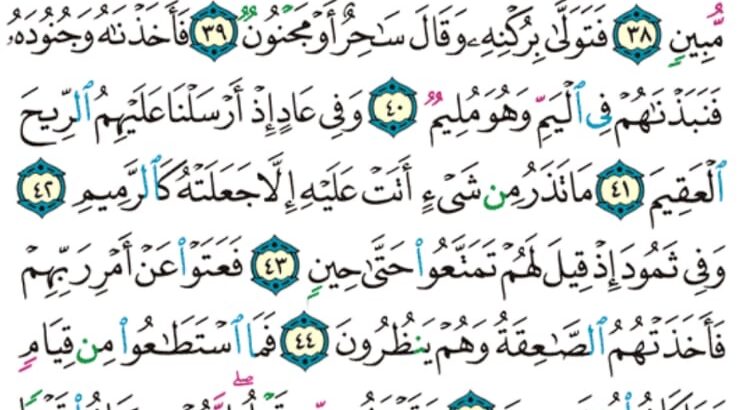 مُّبِينٍ ٣٨ فَتَوَلَّىٰ بِرُكْنِهِۦ وَقَالَ سَٰحِرٌ أَوْ مَجْنُونٌ ٣٩ فَأَخَذْنَٰهُ وَجُنُودَهُۥ
فَنَبَذْنَٰهُمْ فِي ٱلْيَمِّ وَهُوَ مُلِيمٌ ٤٠ وَفِي عَادٍ إِذْ أَرْسَلْنَا عَلَيْهِمُ ٱلرِّيحَ
ٱلْعَقِيمَ ٤١ مَا تَذَرُ مِن شَيْءٍ أَتَتْ عَلَيْهِ إِلَّا جَعَلَتْهُ كَٱلرَّمِيمِ ٤٢
وَفِي ثَمُودَ إِذْ قِيلَ لَهُمْ تَمَتَّعُوا۟ حَتَّىٰ حِينٍ ٤٣ فَعَتَوْا۟ عَنْ أَمْرِ رَبِّهِمْ
فَأَخَذَتْهُمُ ٱلصَّٰعِقَةُ وَهُمْ يَنظُرُونَ ٤٤ فَمَا ٱسْتَطَٰعُوا۟ مِن قِيَامٍ